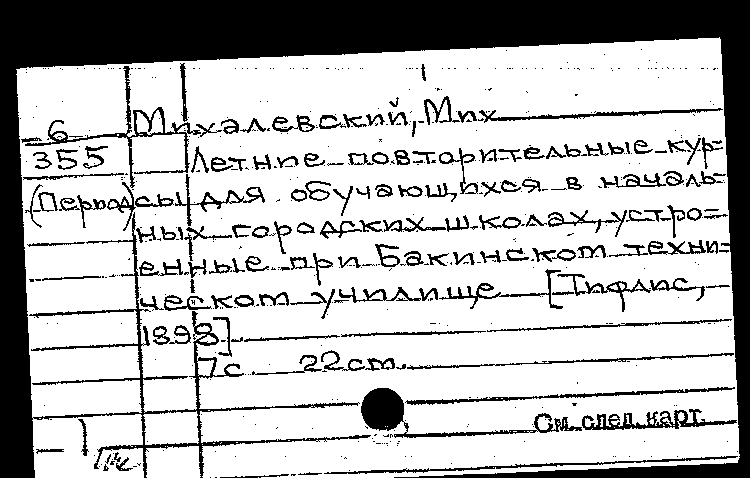 6 Михалевский, Мих
355 Летние повторительные кур=
(Период) сы для обучающихся в началь=
ных городских школах, устро=
енные при Бакинском техни=
ческом училище [Тифлис,
1898].
7с. 22 cm.
См. след. карт.